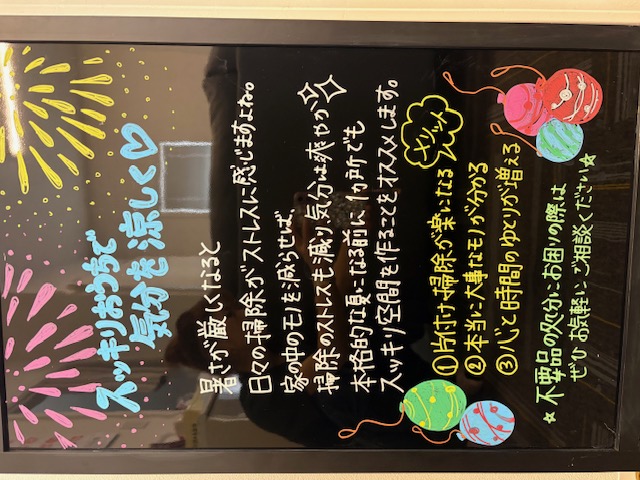 スッキリおうちで
気分を涼しく♡
暑さが厳しくなると
日々の掃除がストレスに感じますよね。
家の中のモノを減らせば、
掃除のストレスも減り、気分は爽やか✨
本格的な夏になる前に1ヵ所でも
スッキリ空間を作ることをオススメします。
メリット
①片付け・掃除が楽になる
②本当に大事なモノが分かる
③心と時間のゆとりが増える
☆不要品の処分にお困りの際は
ぜひお気軽にご相談ください☆